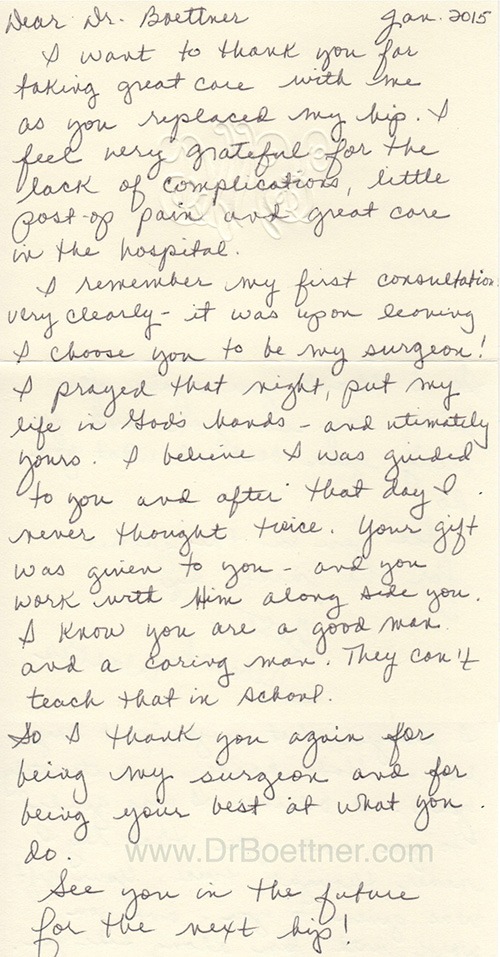 Dear Dr. Boettner Jan. 2015
I want to thank you for
taking great care with me
as you replaced my hip. I
feel very grateful for the
lack of complications, little
post-op pain and great care
in the hospital.
I remember my first consultation
very clearly - it was upon leaving
I choose you to be my surgeon!
I prayed that night, put my
life in God's hands - and ntimately
yours. I believe I was guided
to you and after that day I
never thought twice. Your gift
was given to you - and you
work with Him along side you.
I know you are a good man
and a caring man. They can't
teach that in school.
So I thank you again for
being my surgeon and for
being your best at what you
do.
www.DrBoettner.com
See you in the future
for the next hip!